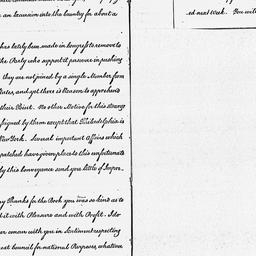 r an Excursion into the Country for about a
has lately been made in Congress to remove to
the Party who support it persevere in pushing
they are not joined by a single Member from
States, and yet there is Reason to apprehend
their Point. No other Motive for this strong
assigned by them except that Philadelphia is
New York. Several important Affairs which
spatched have given place to this unfortunate
by this conveyance send you little of Impor-
my Thanks for the Book you was so kind as to
d it with Pleasure and with Profit. I do
er concur with you in Sentiment respecting
reat Council for national Purposes, whatever
ed next Week. You will